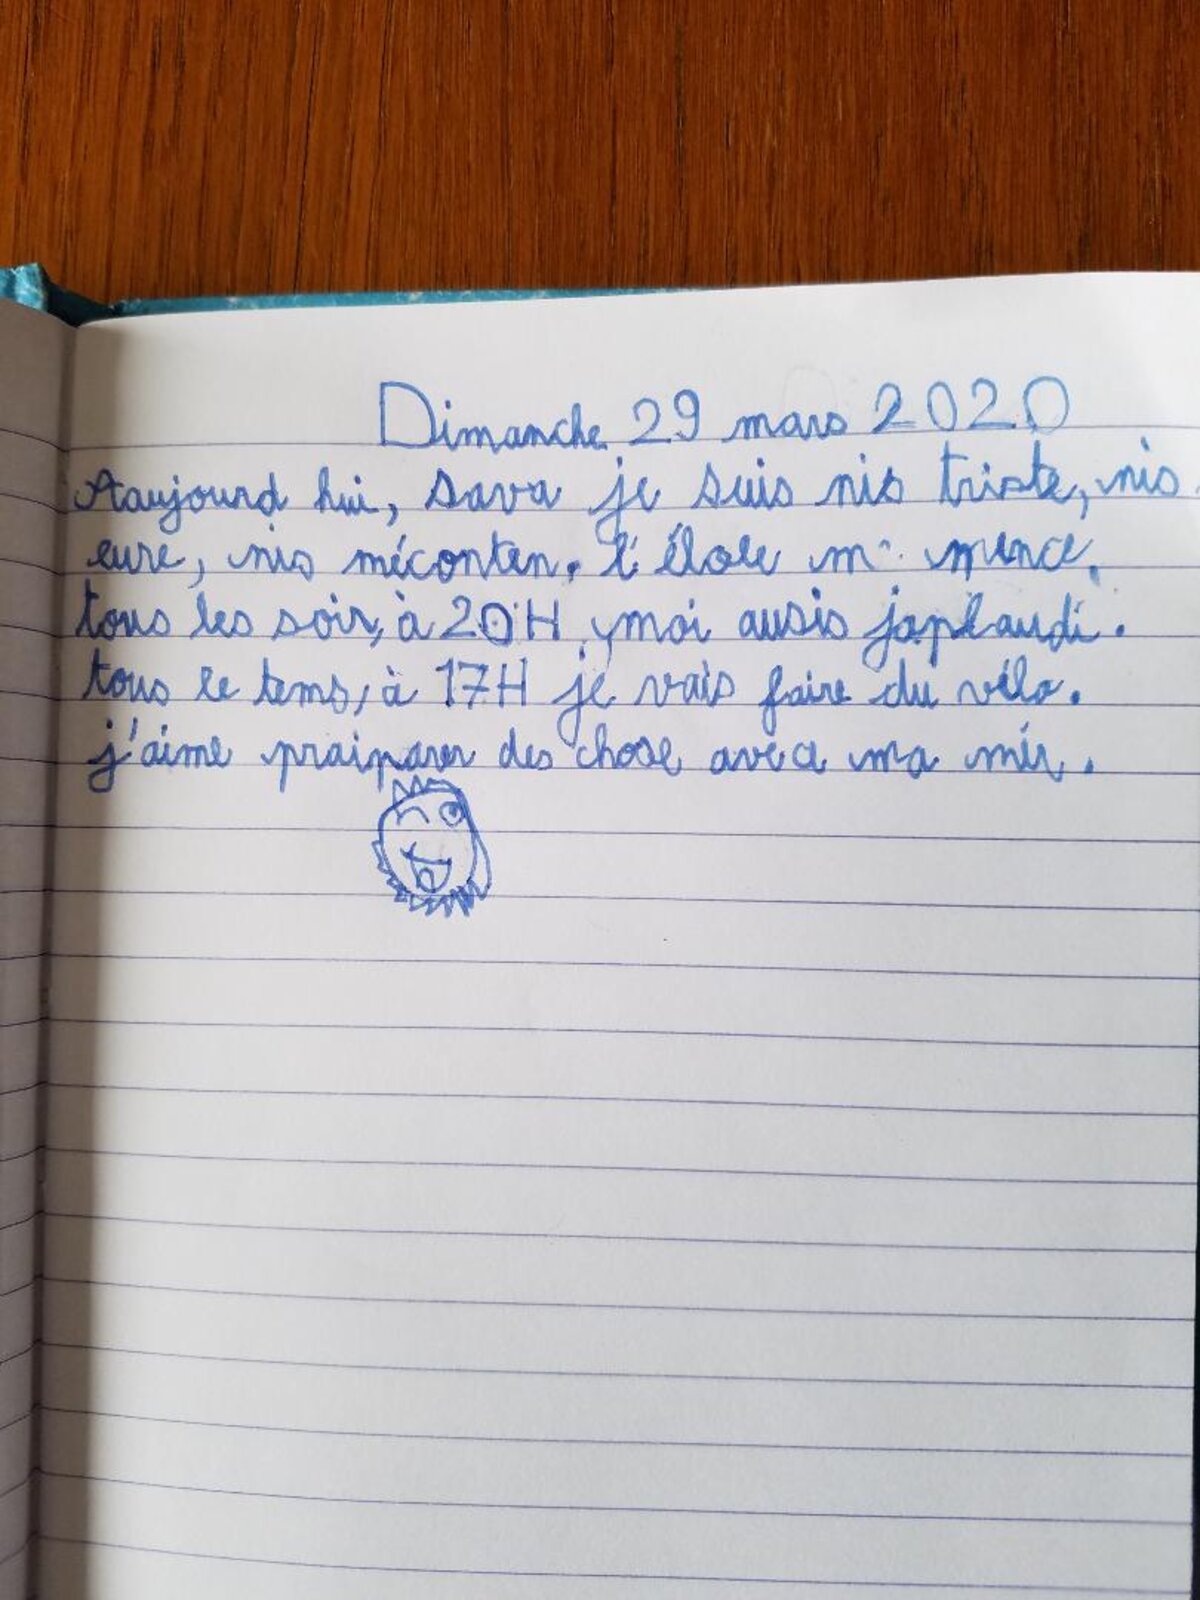 Dimanche 29 mars 2020
Aaujourd hui, sava je suis nis triste, nis
eure, nis méconten. l'élole m mence.
tous les soir, à 20H, moi ausis japlaudi.
tous le tems, à 17H je vais faire du vélo.
j'aime praiparer des chose avec ma mér.